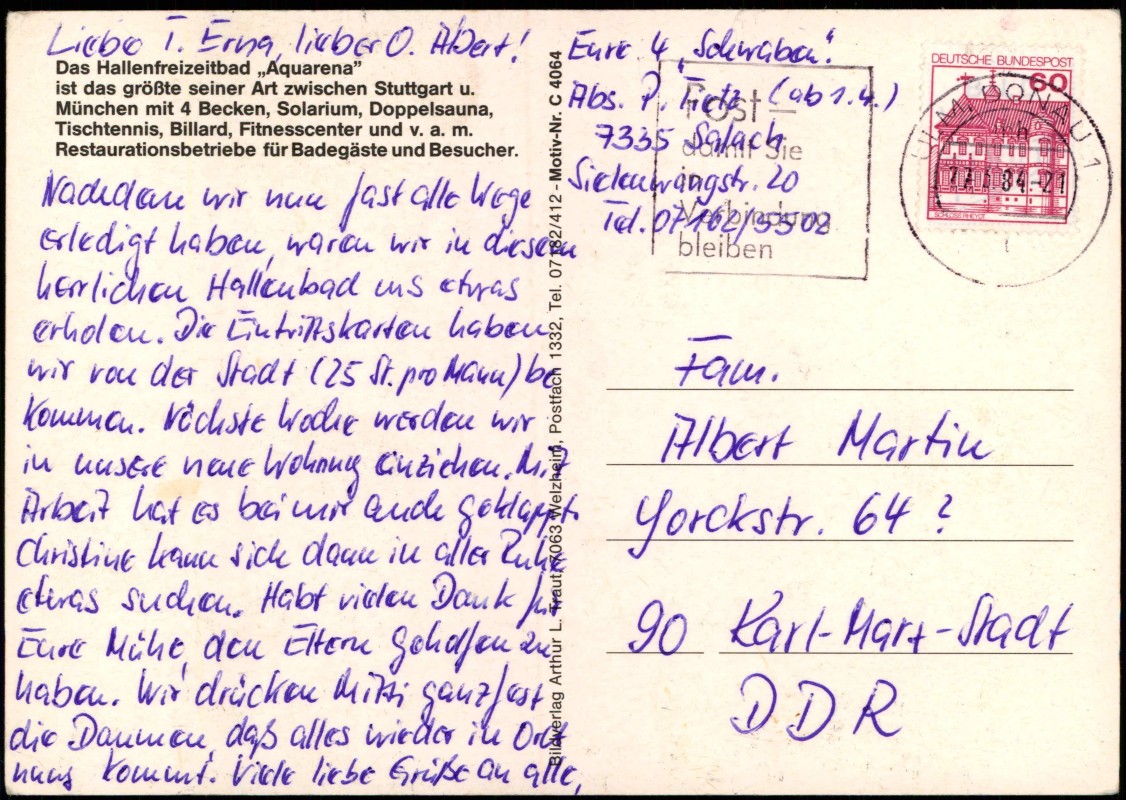 Liebe T. Erna, lieber O. Albert!
Das Hallenfreizeitbad „Aquarena“
ist das größte seiner Art zwischen Stuttgart u.
München mit 4 Becken, Solarium, Doppelsauna,
Tischtennis, Billard, Fitnesscenter und v. a. m.
Restaurationsbetriebe für Badegäste und Besucher.
Nachdem wir nun fast alle Wege
erledigt haben, waren wir in diesem
herrlichen Hallenbad uns etwas
erholen. Die Eintrittskarten haben
wir von der Stadt (25 St. pro Mann) be
kommen. Nächste Woche werden wir
in unsere neue Wohnung einziehen. Mit
Arbeit hat es bei mir auch geklappt.
Christine kann sich dann in aller Ruhe
etwas suchen. Habt vielen Dank für
Eure Mühe, den Eltern geholfen zu
haben. Wir drücken Mitzi ganz fest
die Daumen, daß alles wieder in Ord
nung kommt. Viele liebe Grüße an alle,
Eure 4 „Schwaben“.
Abs. P. Tietz (ab 1.4.)
7335 Salach
20
Tel. 07162/5502
Bildverlag Arthur L. Traut, 7063 Welzheim, Postfach 1332, Tel. 07182/412 - Motiv-Nr. C 4064
Post –
damit Sie
in
Verbindung
bleiben
DEUTSCHE BUNDESPOST
60
SCHLOSS RHEYDT
ULM, DONAU 1
84-21
Fam.
Albert Martin
Yorckstr. 64 ?
90 Karl-Marx-Stadt
DDR